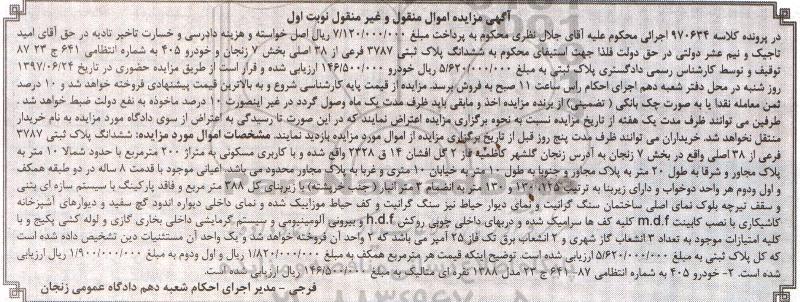 آگهی مزایده اموال منقول و غیر منقول نوبت اول
در پرونده کلاسه ۹۷۰۶۳۴ اجرائی محکوم علیه آقای جلال نظری محکوم به پرداخت مبلغ ۷/۱۲۰/۰۰۰/۰۰۰ ریال اصل خواسته و هزینه دادرسی و خسارت تاخیر تادیه در حق آقای امید
تاجیک و نیم عشر دولتی در حق دولت فلذا جهت استیفای محکوم به ششدانگ پلاک ثبتی ۳۷۸۷ فرعی از ۳۸ اصلی بخش ۷ زنجان و خودرو ۴۰۵ به شماره انتظامی ۶۴۱ ج ۲۳ ۸۷
توقیف و توسط کارشناس رسمی دادگستری پلاک ثبتی به مبلغ ۵/۶۲۰/۰۰۰/۰۰۰ ریال خودرو ۱۴۶/۵۰۰/۰۰۰ ارزیابی شده و قرار است از طریق مزایده حضوری در تاریخ ۱۳۹۷/۰۶/۲۴
روز شنبه در محل دفتر شعبه دهم اجرای احکام راس ساعت ۱۱ صبح به فروش برسد. مزایده از قیمت پایه کارشناسی شروع و به بالاترین قیمت پیشنهادی فروخته خواهد شد و ۱۰ درصد
ثمن معامله نقدا یا به صورت چک بانکی ( تضمینی) از برنده مزایده اخذ و مابقی باید ظرف مدت یک ماه وصول گردد در غیر اینصورت ۱۰ درصد ماخوذه به نفع دولت ضبط خواهد شد .
طرفین می توانند ظرف مدت یک هفته از تاریخ مزایده نسبت به نحوه برگزاری مزایده اعتراض نمایند که در این صورت تا رسیدگی به اعتراض از سوی دادگاه مورد مزایده به نام خریدار
منتقل نخواهد شد. خریداران می توانند ظرف مدت پنج روز قبل از تاریخ برگزاری مزایده از اموال مورد مزایده بازدید نمایند. مشخصات اموال مورد مزایده: ششدانگ پلاک ثبتی ۳۷۸۷
فرعی از ۳۸ اصلی واقع در بخش ۷ زنجان به آدرس زنجان گلشهر کاظمیه فاز ۲ گل افشان ۱۴ ق ۲۳۲۸ واقع شده و با کاربری مسکونی به متراژ ۲۰۰ مترمربع با حدود شمالا ۱۰ متر به
پلاک مجاور و شرقا به طول ۲۰ متر به پلاک مجاور و جنوبا به طول ۱۰ متر به خیابان ۱۰ متری و غربا به پلاک مجاور محدود می باشد. اعیانی موجود با قدمت ۸ ساله در دو طبقه همکف
و اول ودوم هر واحد دوخواب و دارای زیربنا به ترتیب ۱۲۵، ۱۳۰ و ۱۳۰ متر به انضمام ۳ متر انبار ( جنب خرپشته) با زیربنای کل ۳۸۸ متر مربع و فاقد پارکینگ با سیستم سازه ای بتنی
و سقف تیرچه بلوک نمای اصلی ساختمان سنگ گرانیت و نمای دیوار حیاط نیز سنگ گرانیت و کف حیاط موزاییک شده و نمای داخلی دیواره اندود گچ سفید و دیوارهای آشپزخانه
کاشیکاری با نصب کابینت m.d.f کلیه کف ها سرامیک شده و دربهای داخلی چوبی روکش h.d.f و بیرونی آلومینیومی و سیستم گرمایشی داخلی بخاری گازی و لوله کشی پکیج و با
کلیه امتیازات موجود به تعداد ۳ انشعاب گاز شهری و ۲ انشعاب برق تک فاز ۲۵ آمپر می باشد که ۲ واحد آن فروخته خواهد شد و یک واحد آن مستثنیات دین تشخیص داده شده است
که کل پلاک ثبتی به مبلغ ۵/۶۲۰/۰۰۰/۰۰۰ ارزیابی شده است. توضیح اینکه قیمت هر مترمربع همکف به مبلغ ۱/۸۲۰/۰۰۰/۰۰۰ ریال و اول ودوم به مبلغ ۱/۹۰۰/۰۰۰/۰۰۰ ریال ارزیابی
شده است. ۲- خودرو ۴۰۵ به شماره انتظامی ۸۷- ۶۴۱ ج ۲۳ مدل ۱۳۸۸ نقره ای متالیک به مبلغ ۱۴۶/۵۰۰/۰۰۰ ریال ارزیابی شده است.
فرجی - مدیر اجرای احکام شعبه دهم دادگاه عمومی زنجان